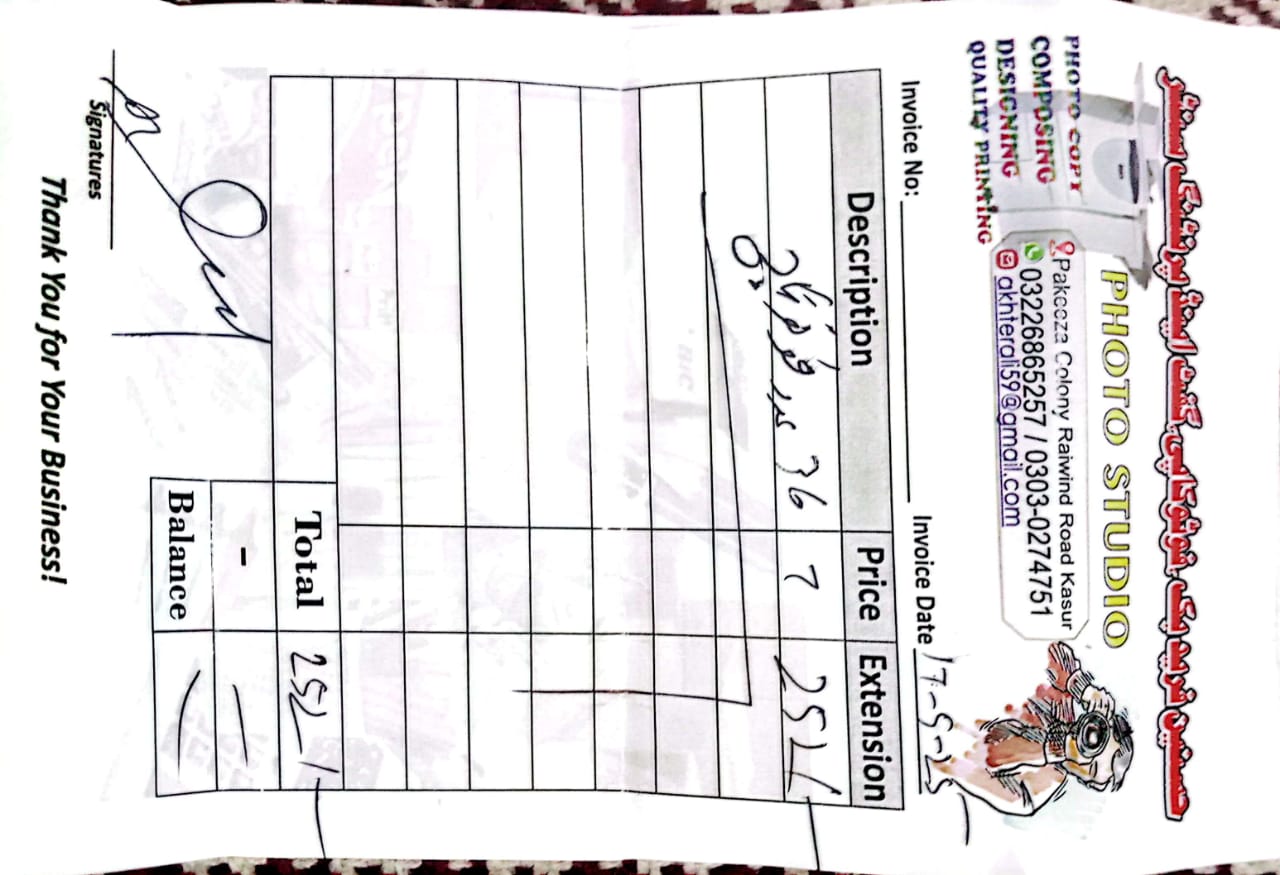 حسنین فرید بک، فوٹو کاپی، گفٹ اینڈ
PHOTO STUDIO
PHOTO COPY
COMPOSING
DESIGNING
QUALITY PRINTING
Pakeeza Colony Raiwind Road Kasur
03226865257 / 0303-0274751
akhterali59@gmail.com
Invoice No: Invoice Date 17-5-25
Description Price Extension
36 عدد فوٹو کاپی 7 252/
Total 252/
-
Balance
Signatures
Thank You for Your Business!